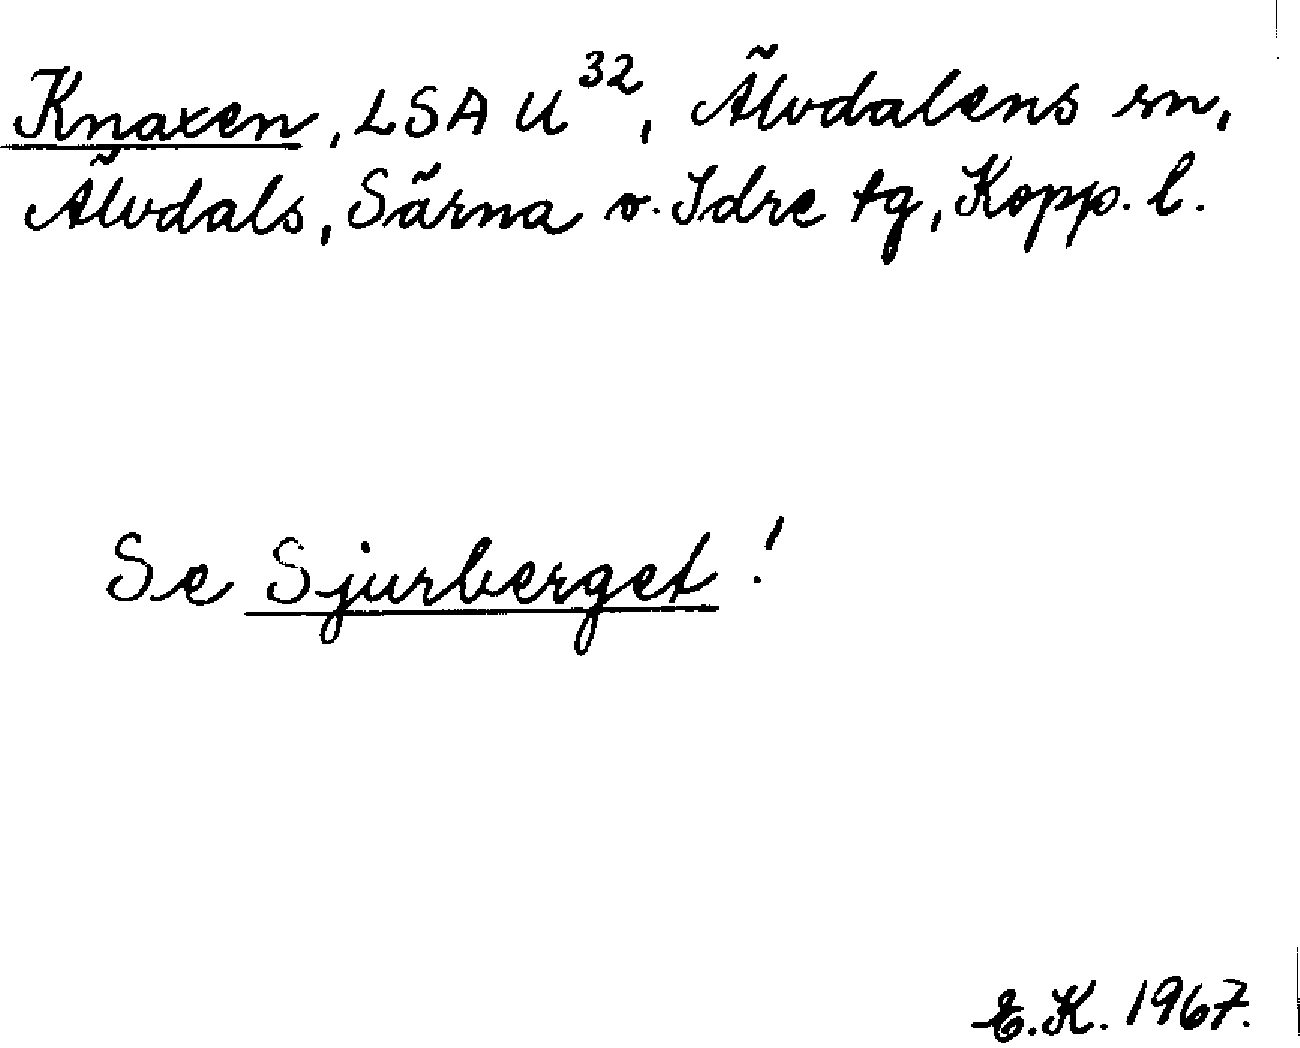 Knaxen, LSA U 32, Älvdalens sn,
Älvdals, Särna o. Idre tg, Kopp. l.
Se Sjurberget!
E.K. 1967.